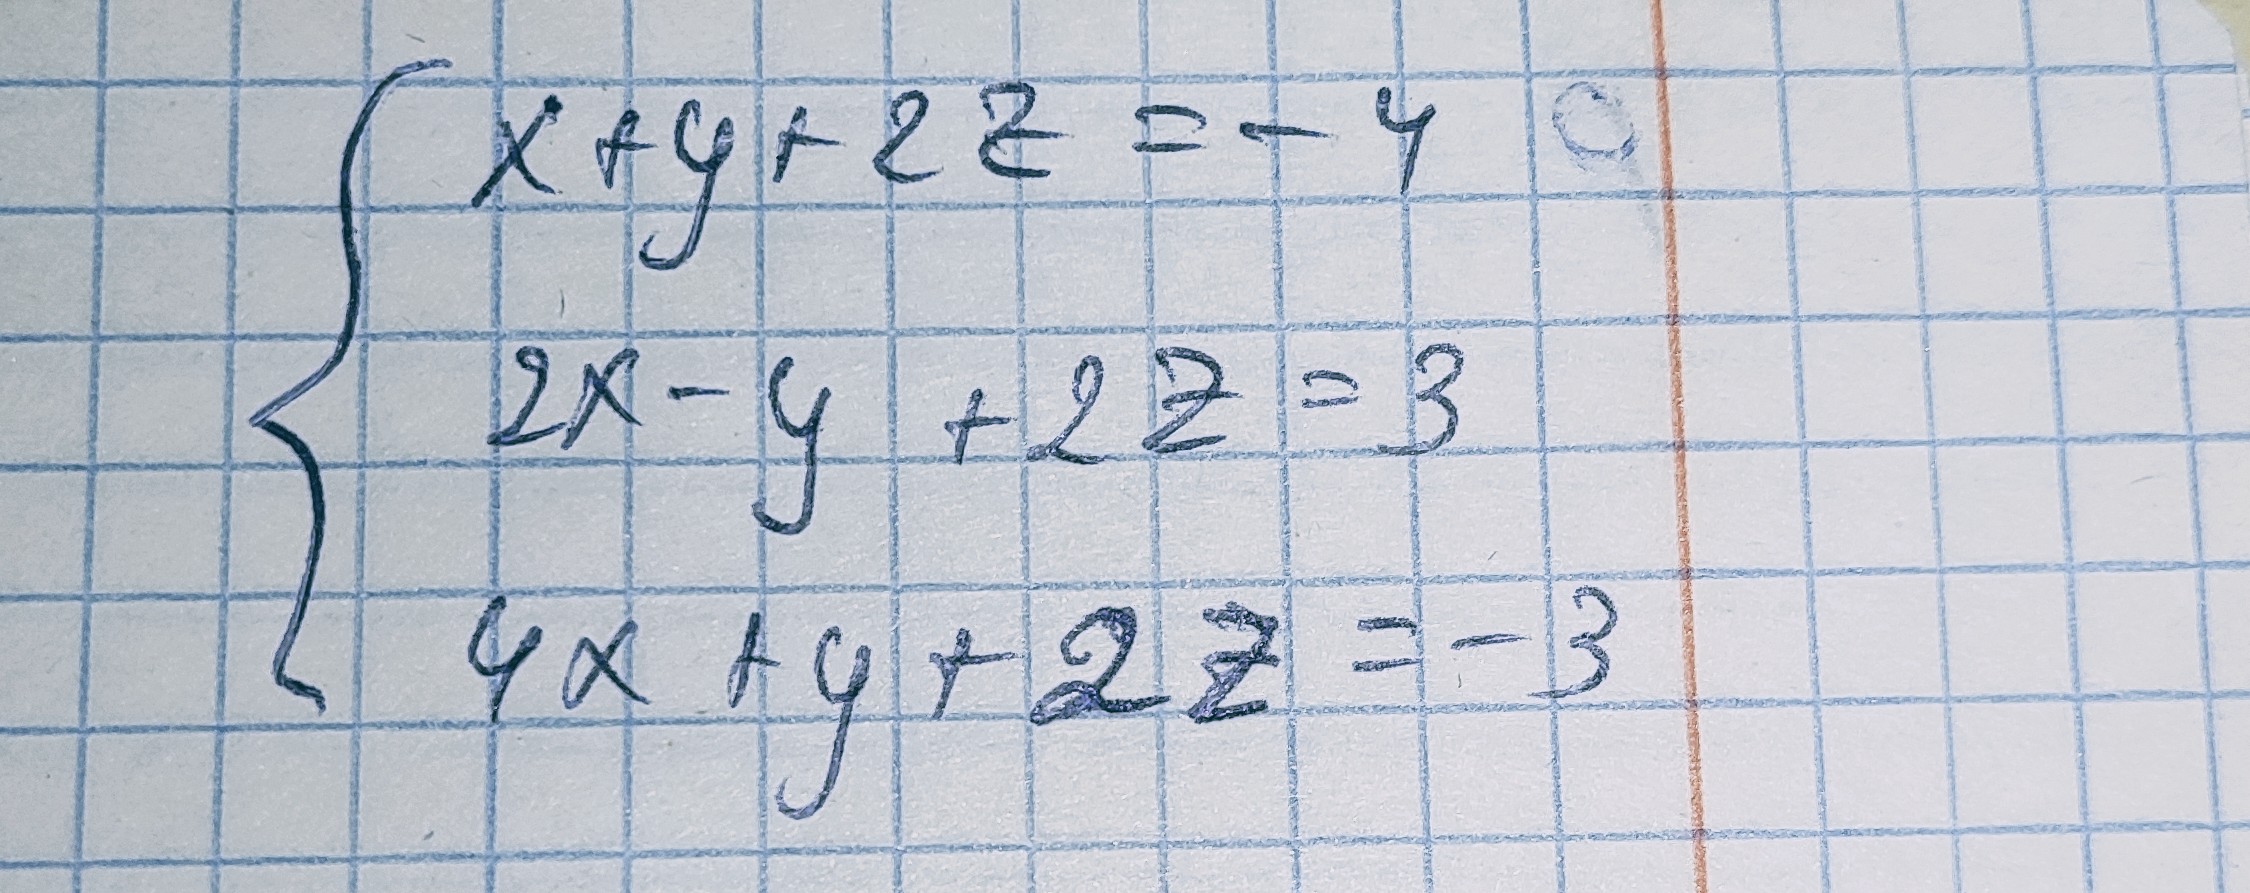 x+y+2z=-4
2x-y+2z=3
4x+y+2z=-3